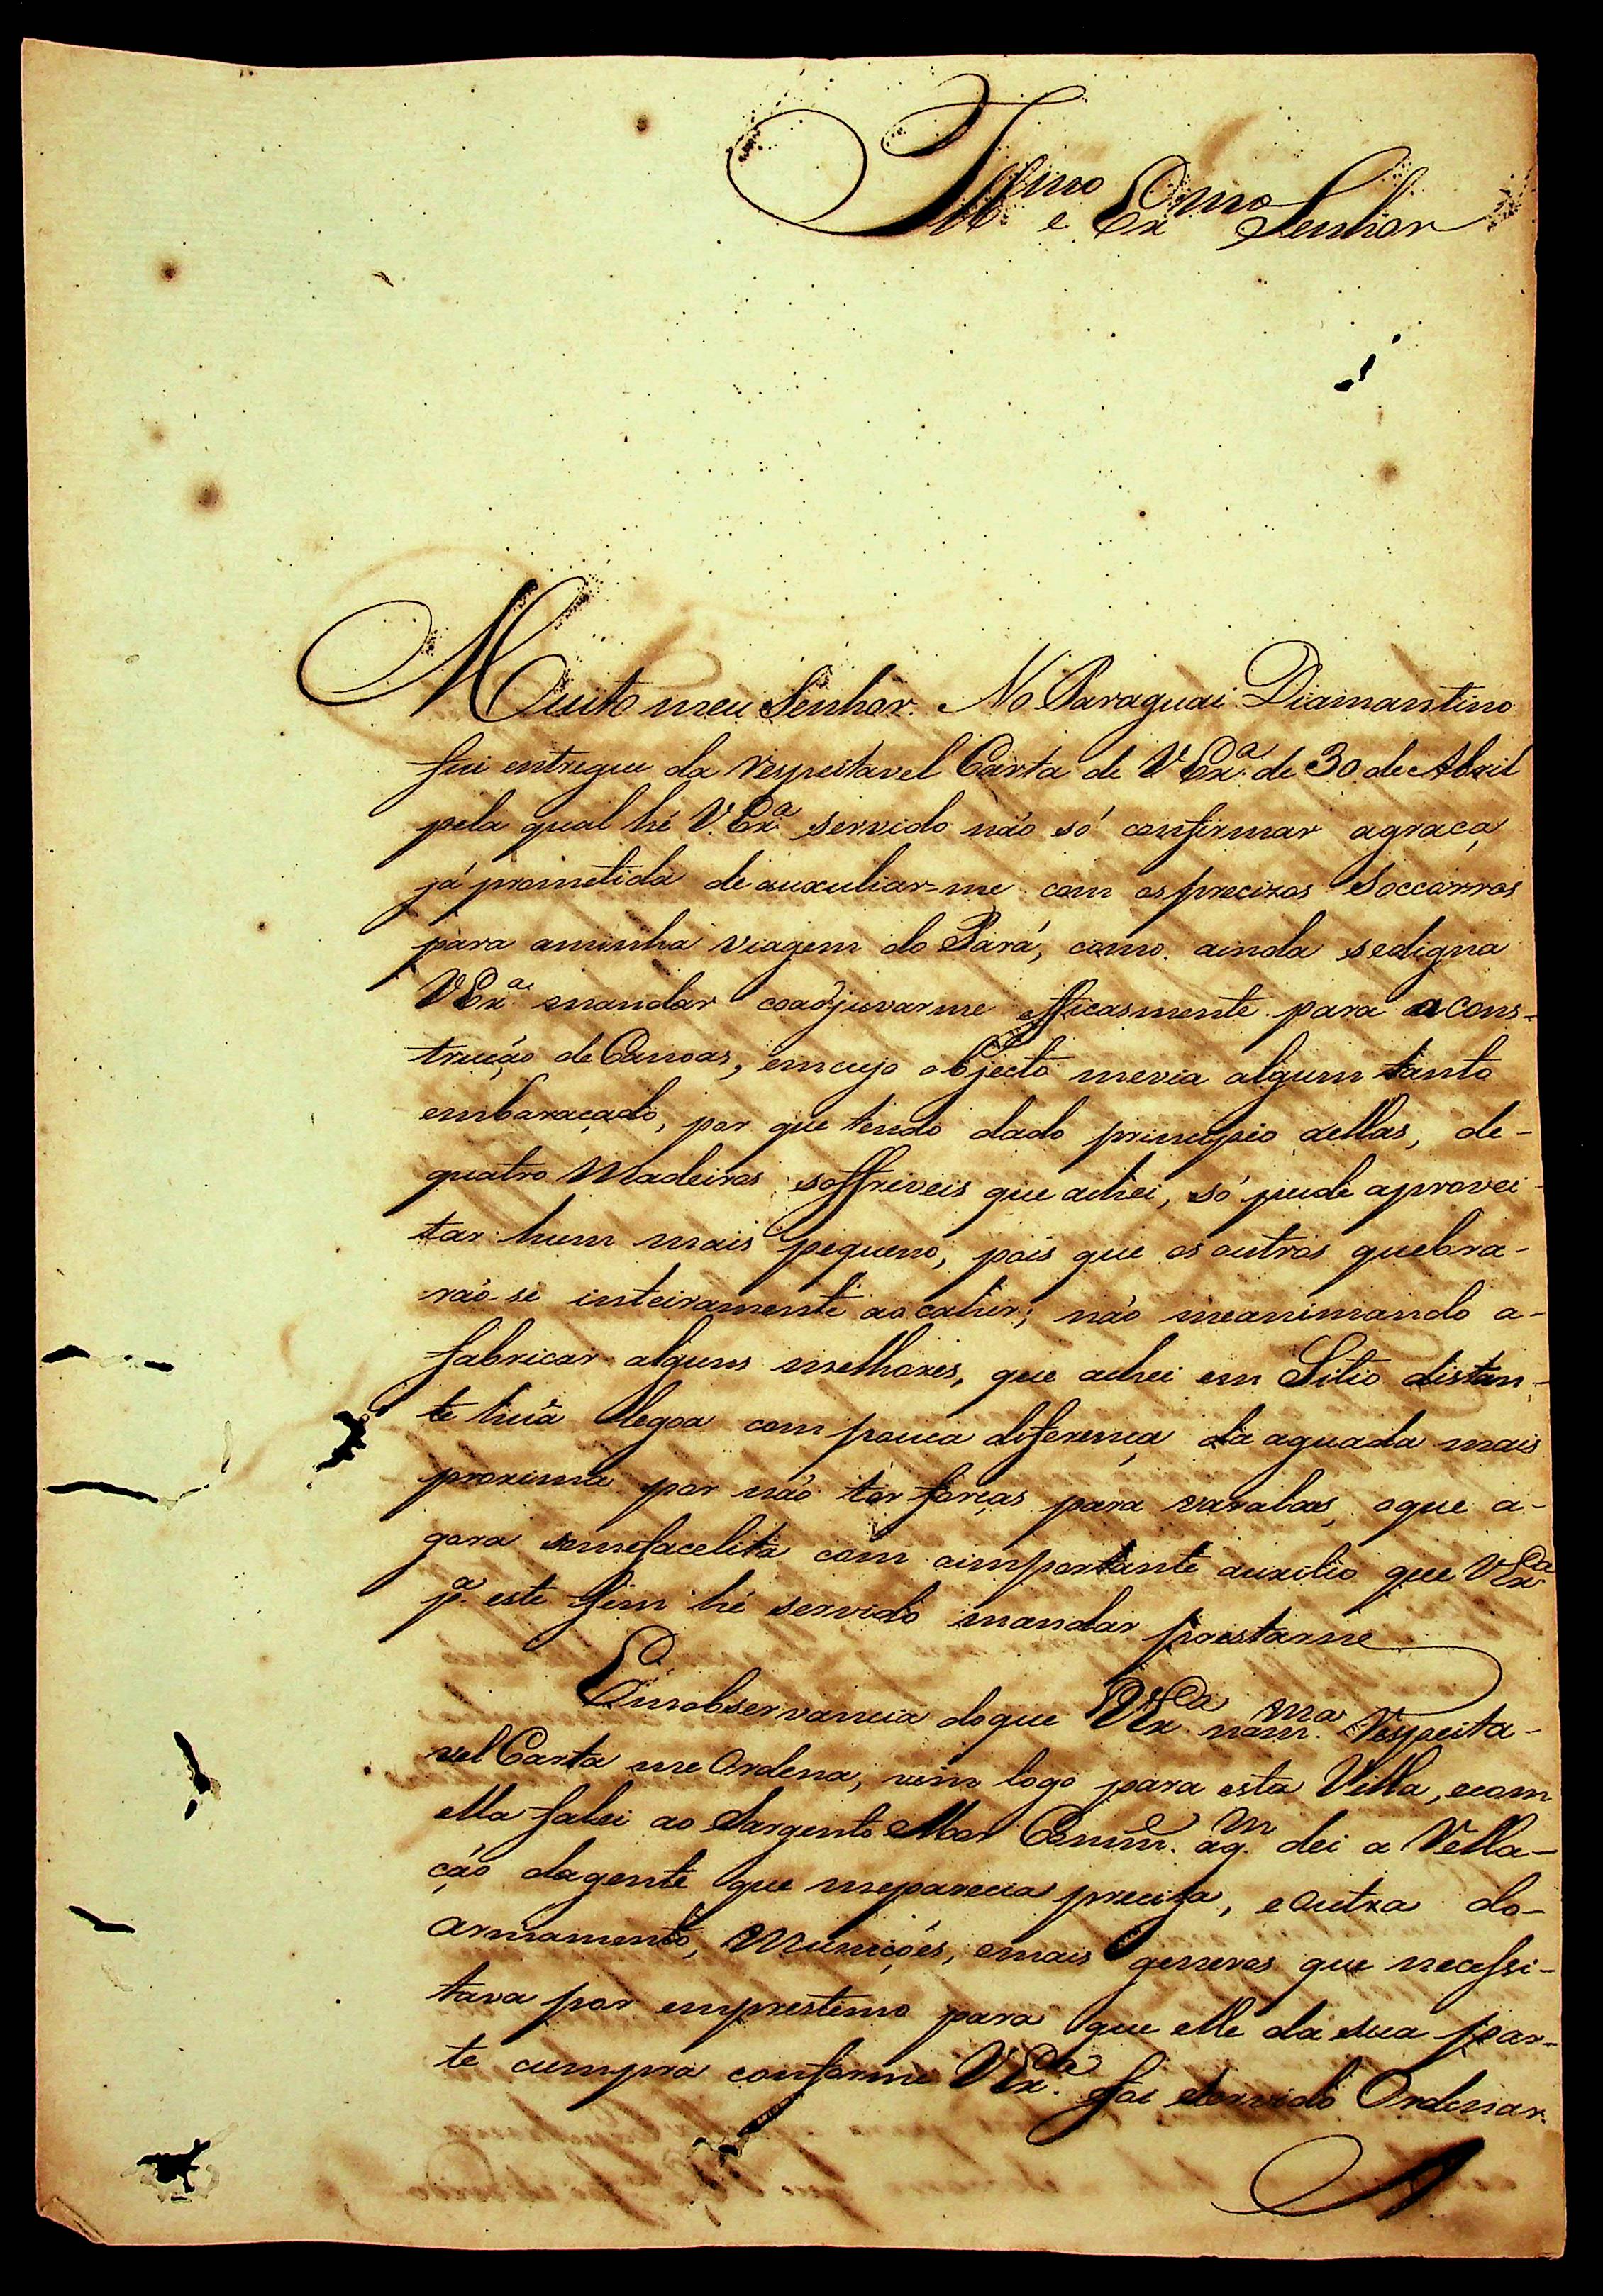 Illmo e Exmo Senhor
Muito meu Senhor. No Paraguai Diamantino
fui entregue da respeitavel Carta de V Exa. de 30 de Abril
pela qual hé V. Exa. servido não só confirmar agraça,
já prometida de auxuliar-me com os precizos Soccorros
para aminha viagem do Pará, como ainda sedigna
V Exa. mandar coadjuvarme efficasmente para a cons-
trução de Canoas, em cujo objecto mevia algum tanto
embaraçado, por que tendo dado principio aellas, de-
quatro Madeiros soffriveis que achei, só pude aprovei-
tar hum mais piqueno, pois que os outros quebra-
rão-se inteiramente ao cahir; não meanimando a-
fabricar alguns melhores, que achei em Sitio distan-
te huã legoa com pouca diferença da aguada mais
proxima por não ter forças para varalas, oque a-
gora semefacelita com oimportante auxilio que V Exa.
pa. este fim hé servido mandar prestarme
Emobservancia doque V Exa. nam. ma Respeita-
vel Carta me Ordena, vim logo para esta Villa, ecom
ella falei ao Sargento Mor Comme. aqm. dei a Rella-
ção dagente que meparecia preciza, e outra do-
armamento, Munições, emais generos que necessi-
tava por emprestimo para que elle da sua par-
te cumpra conforme V Exa. foi Servido Ordenar.
A